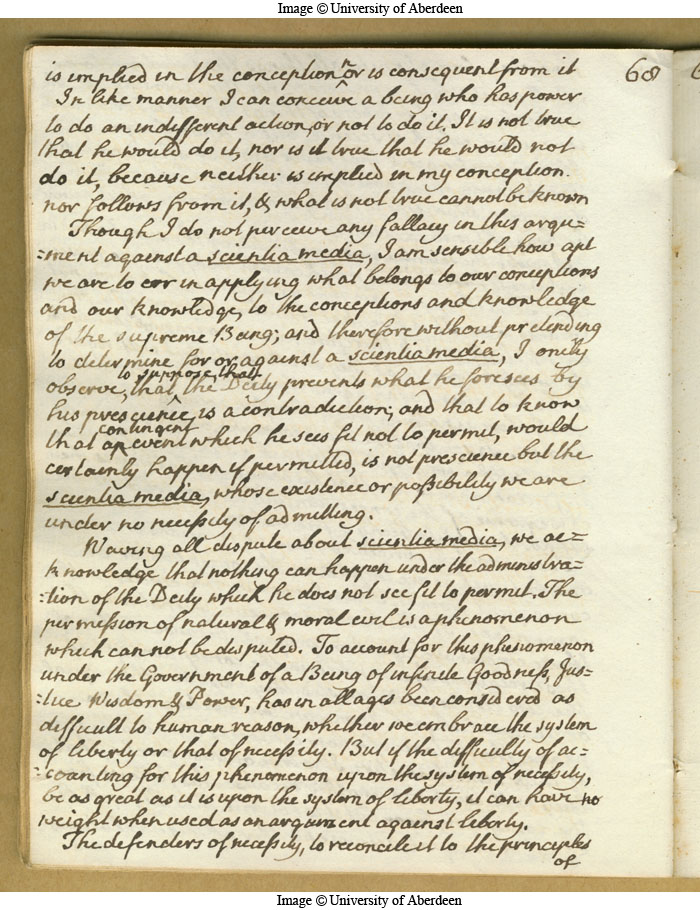 Image © University of Aberdeen
68
is implied in the conception or is consequent from it
In like manner I can conceive a being who has power
to do an indifferent action, or not to do it. It is not true
that he would do it, nor is it true that he would not
do it, because neither is implied in my conception.
nor follows from it, & what is not true cannot be known
Though I do not perceive any fallacy in this argu=
=ment against a scientia media, I am sensible how apt
we are to err in applying what belongs to our conceptions
and our knowledge, to the conceptions and knowledge
of the supreme Being; and therefore without pretending
to determine for or against a scientia media, I onely
observe, that to suppose that the Deity prevents what he foresees by
his prescience, is a contradiction; and that to know
that a contingent event which he sees fit not to permit, would
certainly happen if permitted, is not prescience but the
scientia media, whose existence or possibility we are
under no necessity of admitting.
Waving all dispute about scientia media, we ac=
knowledge that nothing can happen under the administra=
=tion of the Deity which he does not see fit to permit. The
permission of natural & moral evil is a phenomenon
which can not be disputed. To account for this phenomenon
under the Government of a Being of infinite Goodness, Jus=
=tice Wisdom & Power, has in all ages been considered as
difficult to human reason, whether we embrace the system
of liberty or that of necessity. But if the difficulty of ac=
=counting for this phenomenon upon the system of necessity,
be as great as it is upon the system of liberty, it can have no
weight when used as an argument against liberty.
The defenders of necessity, to reconcile it to the principles
of
Image © University of Aberdeen